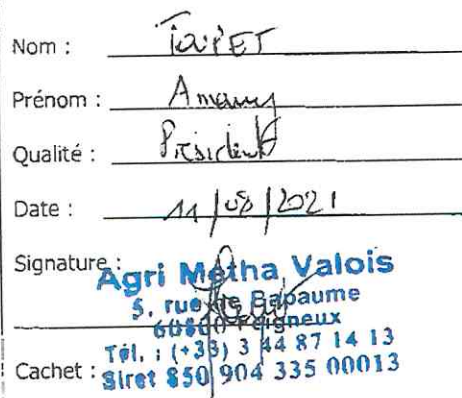 Nom : TOUPET
Prénom : Amaury
Qualité : Président
Date : 11/08/2021
Signature :
Agri Metha Valois
5, rue de Bapaume
60800 Feigneux
Tél. : (+33) 3 44 87 14 13
Cachet : Siret 850 904 335 00013